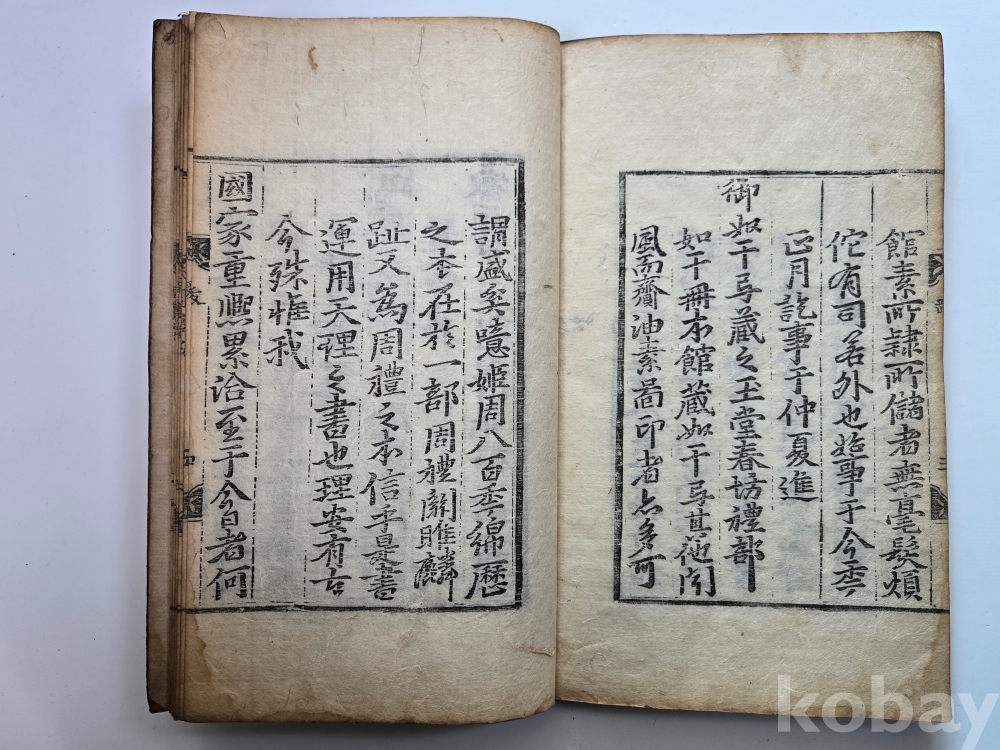 館素所隷所儲者無毫髮煩
佗有司若外也始事于今季
正月訖事于仲夏進
御如干弓藏之玉堂春坊禮部
如干冊本館藏如干弓其他聞
風而齎油素啚印者亦多可
謂盛矣噫姬周八百季綿歷
之本在於一部周禮關雎麟
趾又為周禮之本信乎是書
運用天理之書也理安有古
今殊惟我
國家重熙累洽至于今日者何
kobay